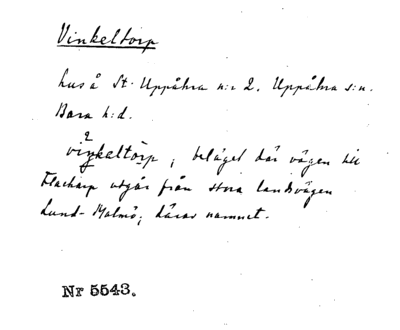 Vinkeltorp
hus å St. Uppåkra n:r 2. Uppåkra s:n.
Bara h:d.
2
viŋkeltòrp, beläget där vägen till
Flackarp utgår från stora landsvägen
Lund-Malmö; därav namnet.
Nr 5543.